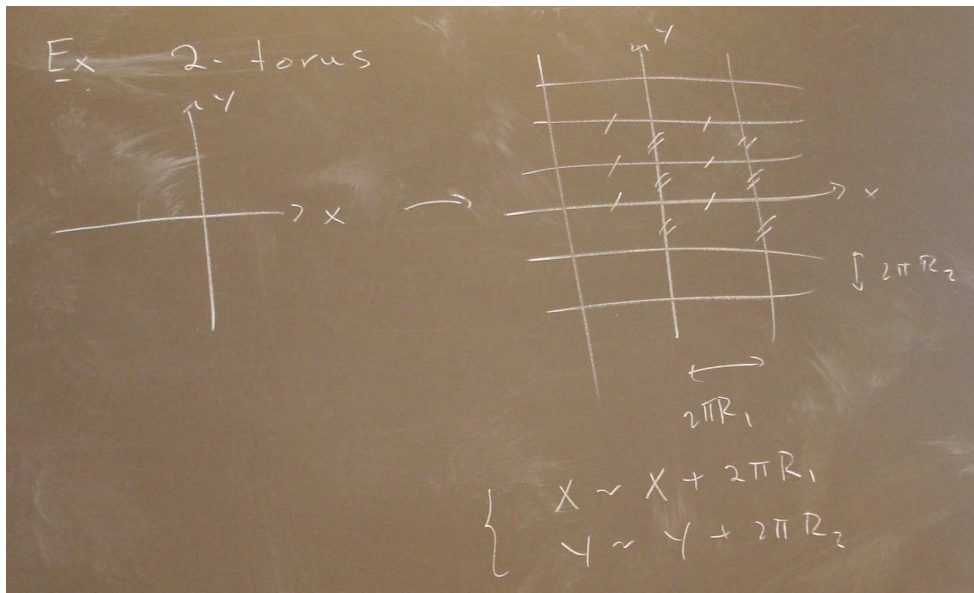 Ex 2-torus
Y
X
Y
x
2πR₂
2πR₁
X ~ X + 2πR₁
Y ~ Y + 2πR₂